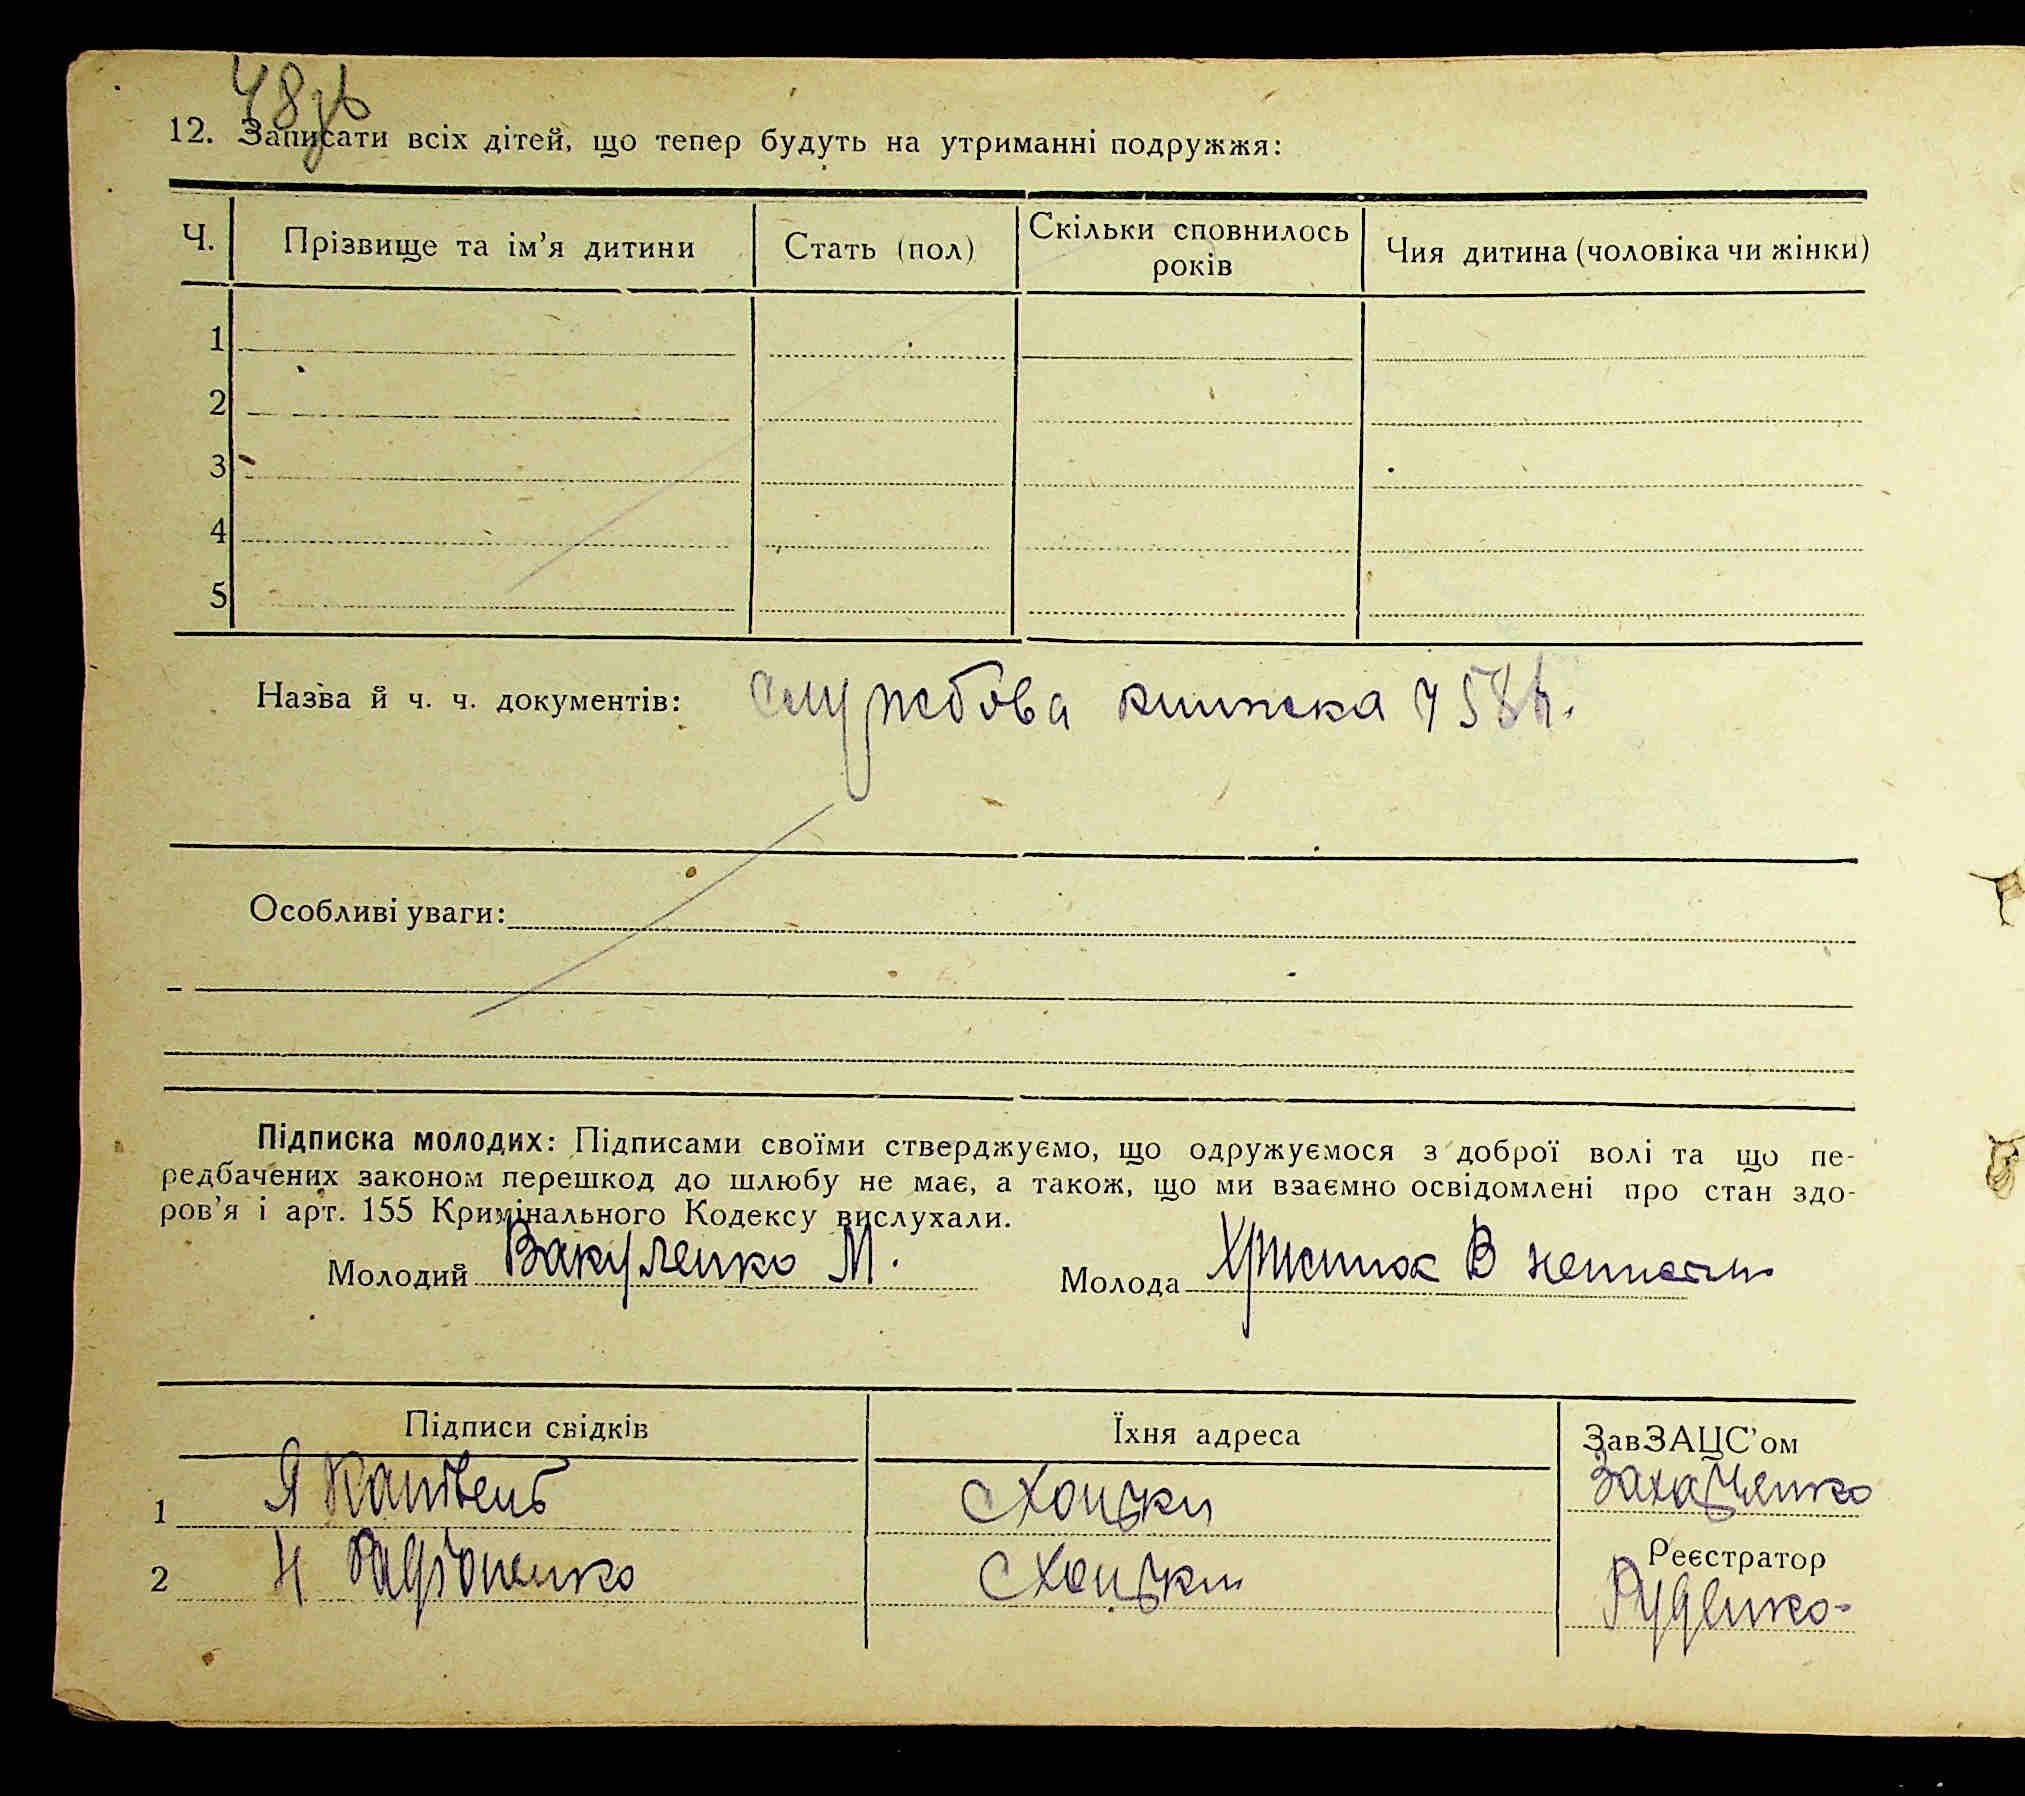 48зв
12. Записати всіх дітей, що тепер будуть на утриманні подружжя:
Ч. Прізвище та ім’я дитини Стать (пол) Скільки сповнилось років Чия дитина (чоловіка чи жінки)
1
2
3
4
5
Назва й ч. ч. документів: Службова книжка
Особливі уваги:
Підписка молодих: Підписами своїми стверджуємо, що одружуємося з доброї волі та що пе-
редбачених законом перешкод до шлюбу не має, а також, що ми взаємно освідомлені про стан здо-
ров’я і арт. 155 Кримінального Кодексу вислухали.
Молодий Вакуленко М. Молода В
Підписи свідків Їхня адреса ЗавЗАЦС’ом
1 Я с Хоцьки Захарченко
2 Н Радіоненко с Хоцьки
Реєстратор
Руденко